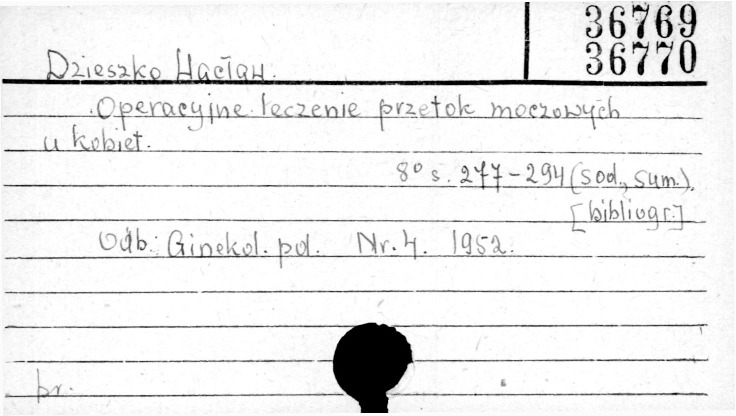 36769
36770
Dzieszko Wacław.
Operacyjne leczenie przetok moczowych
u kobiet.
8° s. 277-294 (sod, sum.).
[bibliogr.]
Odb: Ginekol. pol. Nr. 4. 1952.
br.